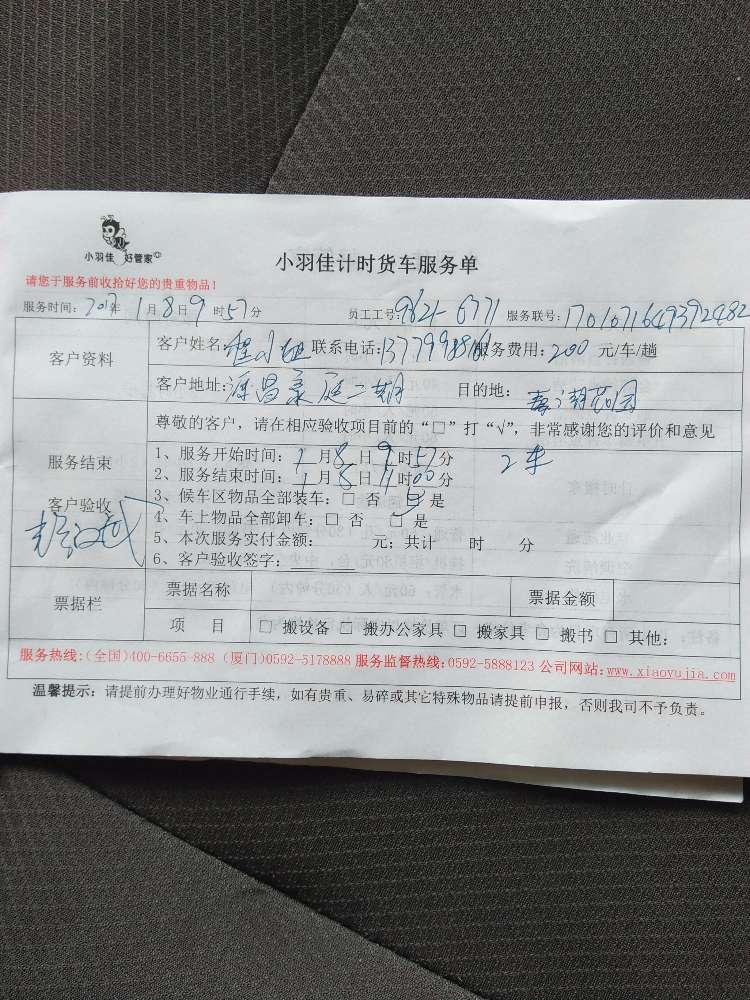 小羽佳 好管家
小羽佳计时货车服务单
请您于服务前收拾好您的贵重物品!
服务时间: 2017年 1月8日9时57分 员工工号: 9621-6771 服务联号: 1701071649392482
客户资料
客户姓名: 程小姐 联系电话: 服务费用: 200 元/车/趟
客户地址: 源昌豪庭二期 目的地:
尊敬的客户,请在相应验收项目前的“□”打“√”,非常感谢您的评价和意见
服务结束
客户验收
1、服务开始时间: 1月8日9时57分 2车
2、服务结束时间: 1月8日11时00分
3、候车区物品全部装车: □ 否 □ 是
4、车上物品全部卸车: □ 否 □ 是
5、本次服务实付金额: 元; 共计 时 分
6、客户验收签字:
票据栏
票据名称 票据金额
项 目 □ 搬设备 □ 搬办公家具 □ 搬家具 □ 搬书 □ 其他:
服务热线:(全国)400-6655-888 (厦门)0592-5178888 服务监督热线:0592-5888123 公司网站:www.xiaoyujia.com
温馨提示: 请提前办理好物业通行手续,如有贵重、易碎或其它特殊物品请提前申报,否则我司不予负责。